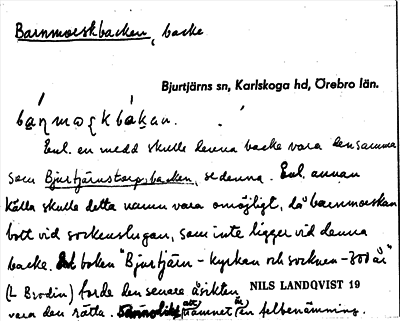 Barnmorskbacken, backe
Bjurtjärns sn, Karlskoga hd, Örebro län.
Enl. en medd skulle denna backe vara densamma
som Bjurtjärnstorpsbacken, se denna. Enl. annan
källa skulle detta namn vara omöjligt, då barnmorskan
bott vid sockenstugan, som inte ligger vid denna
backe. I boken "Bjurtjärn - kyrkan och socknen - 300 år"
(L Brodin) torde den senare åsikten NILS LANDQVIST 19
vara den rätta. att namnet är en felbenämning.